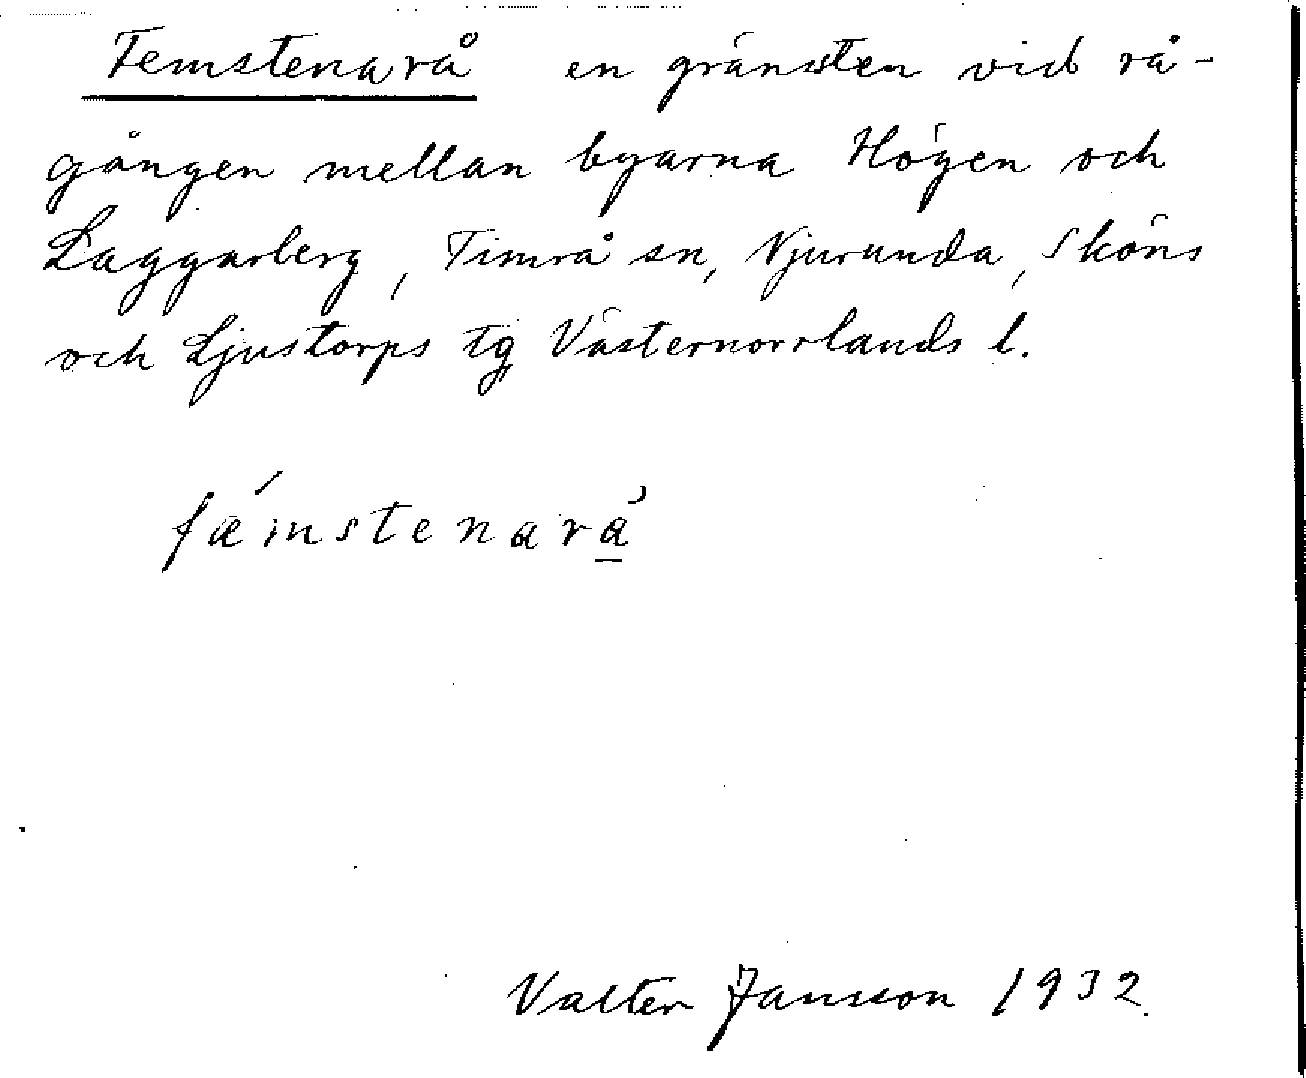 Femstenarå en gränssten vid rå-
gången mellan byarna Högen och
Laggarberg, Timrå sn, Njurunda, Sköns
och Ljustorps tg Västernorrlands l.
fæ´mstenarå
Valter Jansson 1932